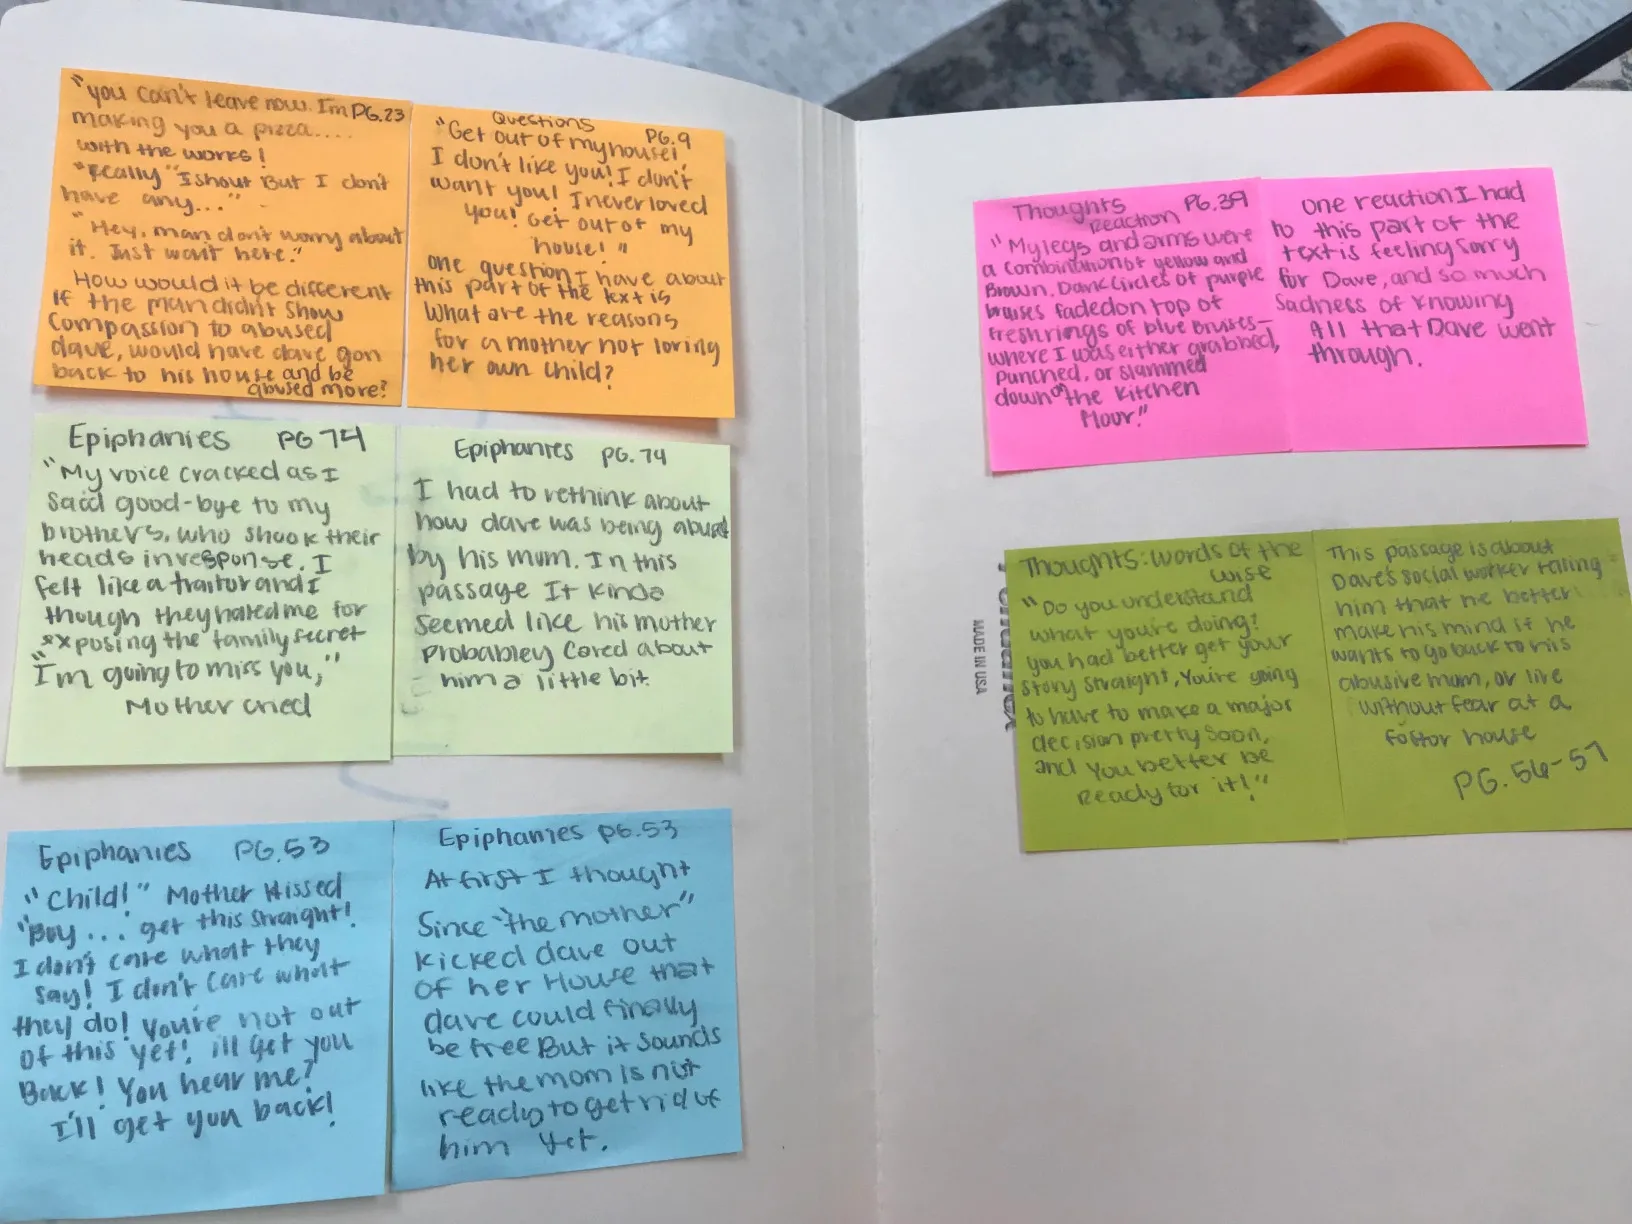 "you can't leave now. I'm PG.23
making you a pizza....
with the works!
"Really" I shout But I don't
have any..."
"Hey, man don't worry about
it. Just wait here."
How would it be different
If the man didn't show
compassion to abused
dave, would have dave gon
back to his house and be
abused more?
Questions
PG.9
"Get out of my house!
I don't like you! I don't
want you! I never loved
you! Get out of my
house!"
One question I have about
this part of the text is
What are the reasons
for a mother not loving
her own child?
Epiphanies PG 74
"My voice cracked as I
said good-bye to my
brothers, who shook their
heads in response. I
felt like a traitor and I
though they hated me for
exposing the family secret
"I'm going to miss you,"
Mother cried
Epiphanies PG. 74
I had to rethink about
how dave was being abused
by his mum. In this
passage It kinda
seemed like his mother
probabley cared about
him a little bit.
Epiphanies PG.53
"Child!" Mother Hissed
"Boy... get this straight!
I don't care what they
say! I don't care what
they do! You're not out
of this yet! i'll get you
Back! You hear me?
I'll get you back!
Epiphanies PG.53
At first I thought
Since "the mother"
kicked dave out
of her House that
dave could finally
be free But it sounds
like the mom is not
ready to get rid of
him yet.
Thoughts PG.39
Reaction
"My legs and arms were
a combination of yellow and
Brown. Dark Circles of purple
bruises faded on top of
fresh rings of blue Bruises-
where I was either grabbed,
Punched, or slammed
down on the Kitchen
One reaction I had
to this part of the
text is feeling sorry
for Dave, and so much
Sadness of knowing
All that Dave went
through.
Thoughts: words of the
wise
"Do you understand
what you're doing?
you had better get your
story straight, You're going
to have to make a major
decision pretty soon,
and you better be
Ready for it!"
This passage is about
Dave's social worker
him that he better
make his mind if he
wants to go back to his
abusive mum, or live
without fear at a
foster house
PG. 56-57
MADE IN USA